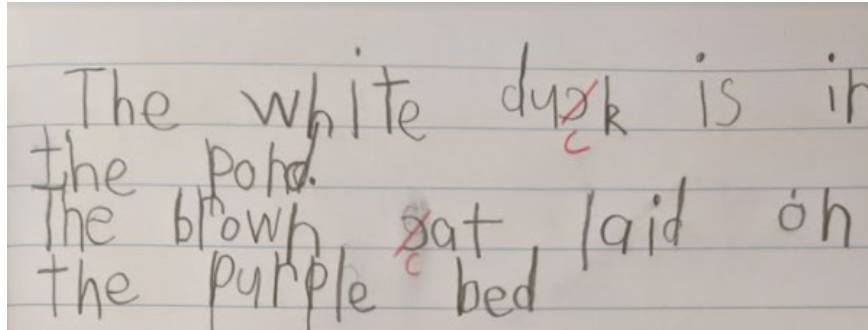 The white duck is in
the pond.
The brown cat laid on
the purple bed